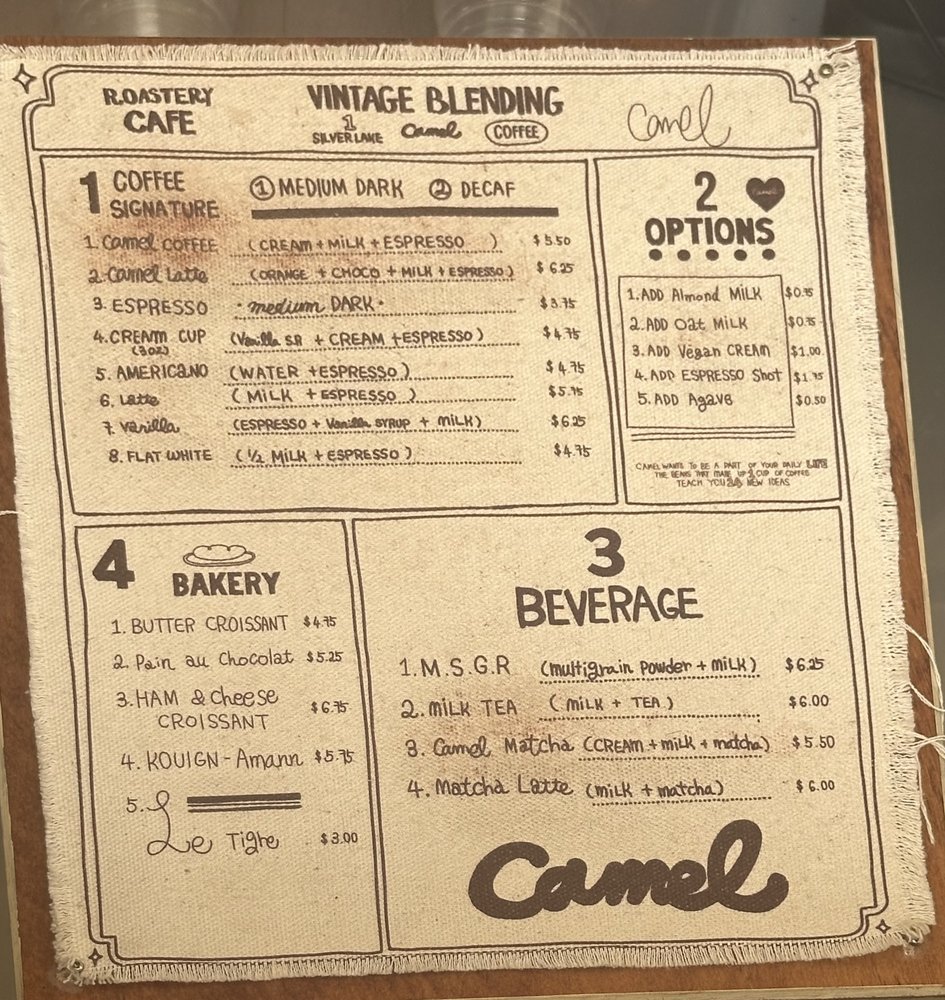 R.OASTERY
CAFE
VINTAGE BLENDING
1
SILVER LAKE Camel COFFEE
Camel
1 COFFEE
SIGNATURE
① MEDIUM DARK ② DECAF
1. Camel COFFEE (CREAM + MiLK + ESPRESSO ) $5.50
2. Camel Latte (ORANGE + CHOCO + MiLK + ESPRESSO) $6.25
3. ESPRESSO · medium DARK · $3.75
4. CREAM CUP (Vanilla S.R + CREAM + ESPRESSO) $4.75
(3OZ)
5. AMERICANO (WATER + ESPRESSO) $4.75
6. Latte ( MiLK + ESPRESSO ) $5.75
7 Vanilla (ESPRESSO + Vanilla SYRUP + MiLK) $6.25
8. FLAT WHITE (½ MiLK + ESPRESSO) $4.75
2
Camel
OPTIONS
1. ADD Almond MiLK $0.75
2. ADD Oat MiLK $0.75
3. ADD Vegan CREAM $1.00
4. ADD ESPRESSO Shot $1.75
5. ADD Agave $0.50
CAMEL WANTS TO BE A PART OF YOUR DAILY LIFE
THE BEANS THAT MAKE UP 1 CUP OF COFFEE
TEACH YOU 24 NEW IDEAS
4
BAKERY
1. BUTTER CROISSANT $4.75
2. Pain au Chocolat $5.25
3. HAM & Cheese
CROISSANT $6.75
4. KOUIGN-Amann $5.75
5.
Le Tigre $3.00
3
BEVERAGE
1. M.S.G.R (multigrain Powder + MiLK) $6.25
2. MiLK TEA ( MiLK + TEA ) $6.00
3. Camel Matcha (CREAM + MiLK + matcha) $5.50
4. Matcha Latte (MiLK + matcha) $6.00
Camel